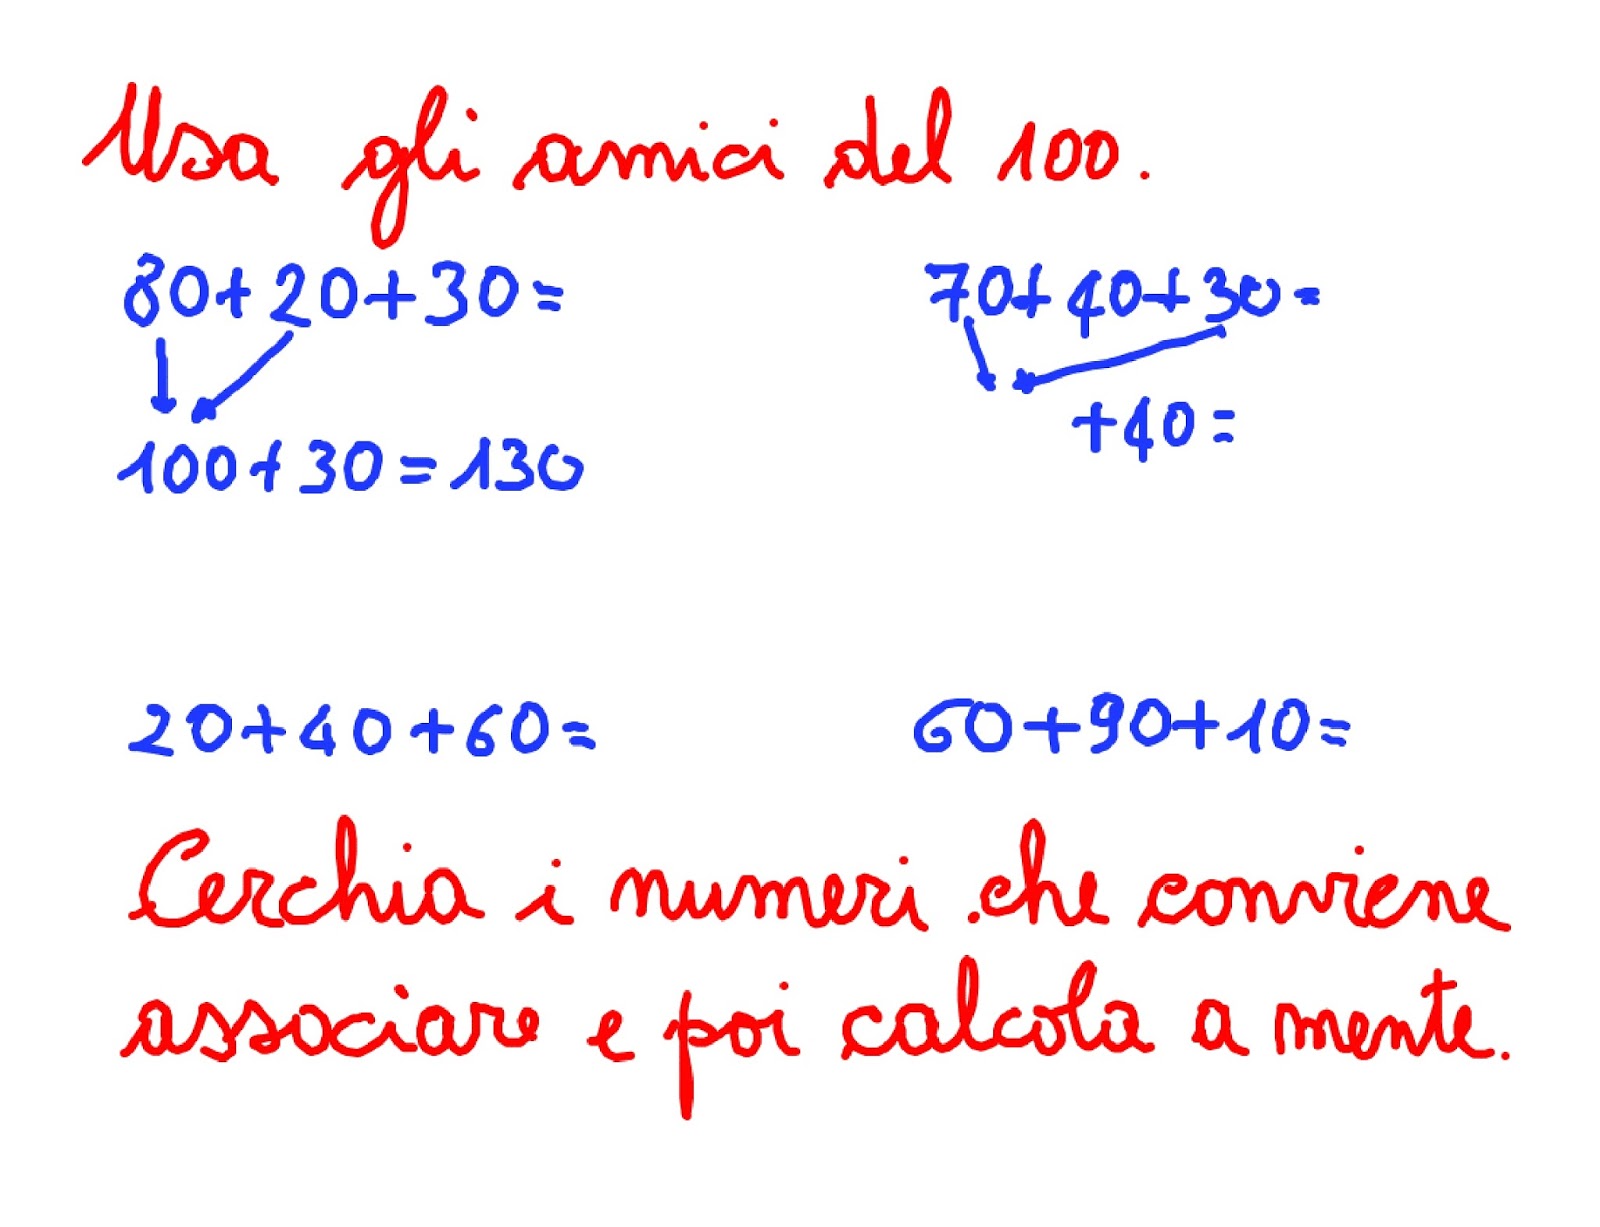 Usa gli amici del 100.
80+20+30=
70+40+30=
+40=
100+30=130
20+40+60=
60+90+10=
Cerchia i numeri che conviene
associare e poi calcola a mente.